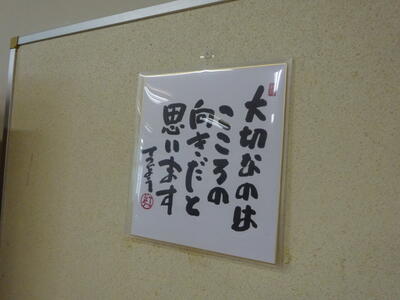 大切なのは
こころの
向きだと
思います